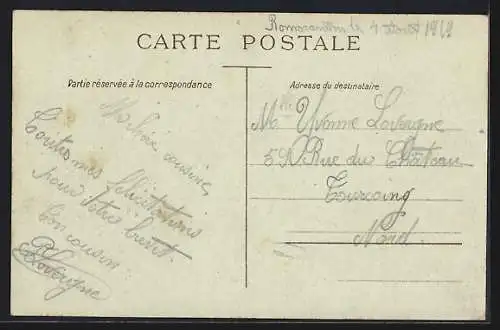 Romorantin le 4 Août 1912
CARTE POSTALE
Partie réservée à la correspondance
Adresse du destinataire
Ma chère cousine,
Toutes mes félicitations
pour votre brevet.
Ton cousin
R Lavergne
Mlle Yvonne Lavergne
59 Rue du Château
Tourcoing
Nord.